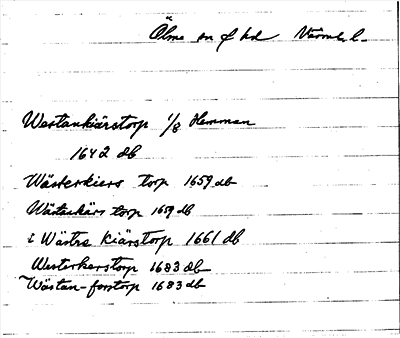 Ölme sn o f hd Värml. l.
Westankiärstorp 1/8 Hemman
1642 db
Wästerkiers torp 1659 db
Wästankärs torp 1659 db
i Wästra Kiärstorp 1661 db
Westerkerstorp 1683 db
Wästan-forstorp 1683 db